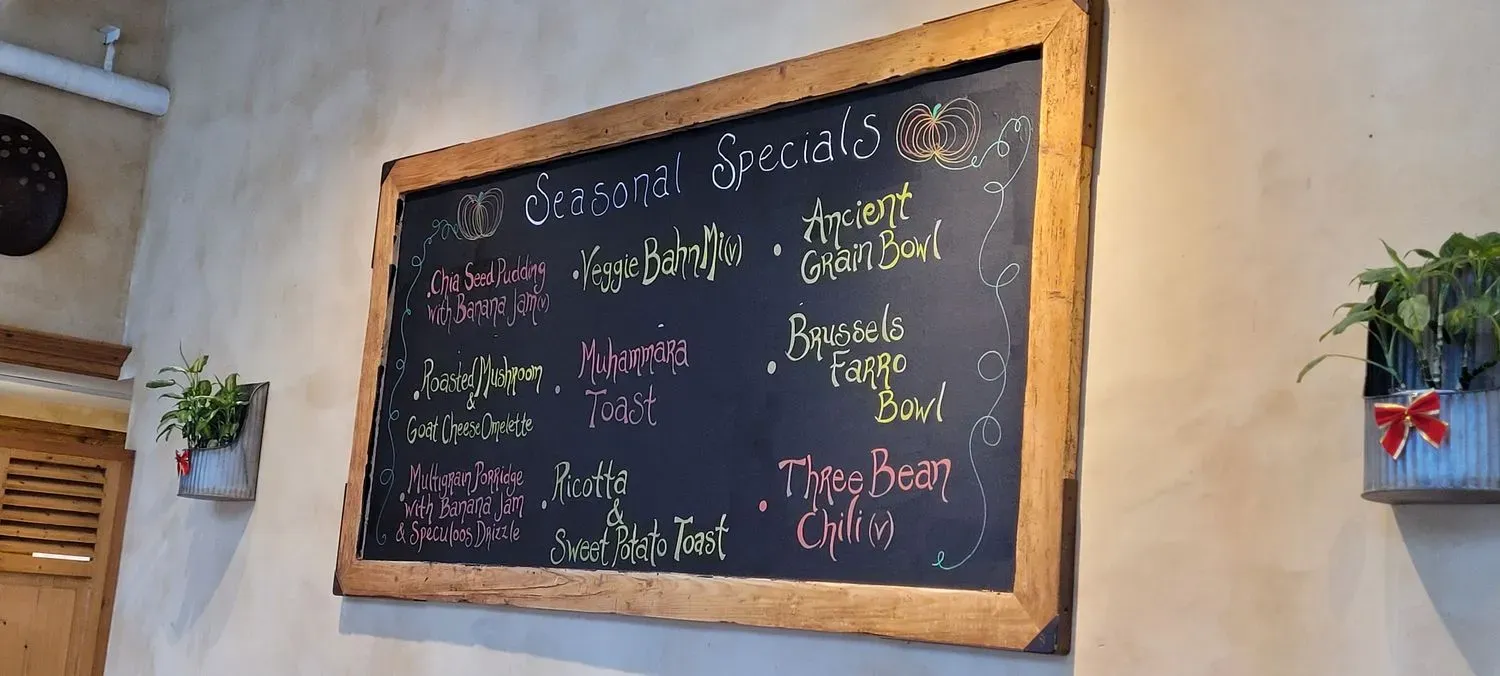 Seasonal Specials
.Chia Seed Pudding
with Banana Jam (v)
.Roasted Mushroom
&
Goat Cheese Omelette
.Multigrain Porridge
with Banana Jam
& Speculoos Drizzle
.Veggie Bahn Mi (v)
.Muhammara
Toast
.Ricotta
&
Sweet Potato Toast
.Ancient
Grain Bowl
.Brussels
Farro
Bowl
.Three Bean
Chili (v)